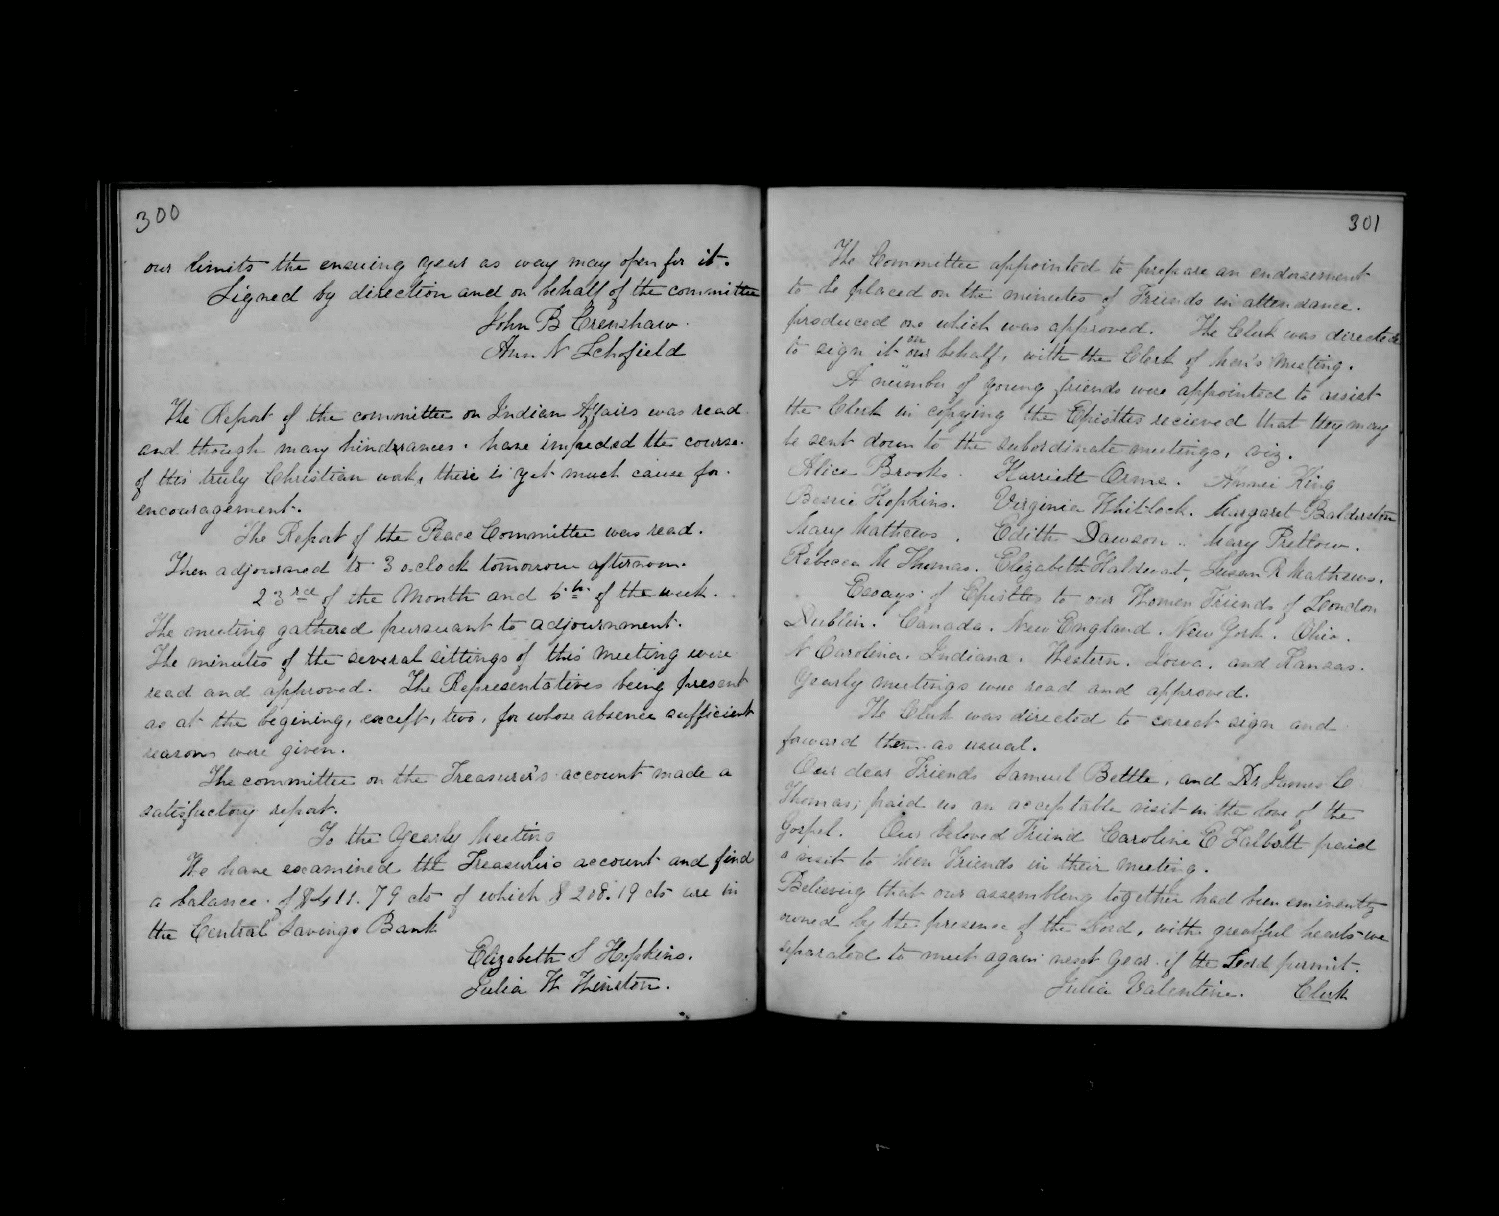 300
our limits the ensuing year as way may open for it.
Signed by direction and on behalf of the committee
John B Crenshaw.
Ann N Schofield
The Report of the committee on Indian Affairs was read
and though many hindrances have impeded the course
of this truly Christian work, there is yet much cause for
encouragement.
The Report of the Peace Committee was read.
Then adjourned to 3 oclock tomorrow afternoon.
23rd of the Month and 6th of the week.
The meeting gathered pursuant to adjournment.
The minutes of the several sittings of this meeting were
read and approved. The Representatives being present
as at the begining, except, two, for whose absence sufficient
reasons were given.
The committee on the Treasurer's account made a
satisfactory report.
To the Yearly Meeting
We have examined the Treasurer's account and find
a balance of $411.79 cts of which $208.19 cts are in
the Central Savings Bank
Elizabeth S Hopkins.
Julia W Winston.
301
The Committee appointed to prepare an endorsement
to be placed on the minutes of Friends in attendance.
produced one which was approved. The Clerk was directed
to sign it on our behalf, with the Clerk of Men's Meeting.
A number of young friends were appointed to assist
the Clerk in copying the Epistles recieved that they may
be sent down to the subordinate meetings, viz.
Alice Brooks. Harriett Orme. Annie King
Bessie Hopkins. Virginia Whitlock. Margaret Balderston
Mary Mathews. Edith Dawson.. Mary Pretlow.
Rebecca M Thomas. Elizabeth Haldwat, Susan R Mathews.
Essays of Epistles to our Women Friends of London
Dublin. Canada. New England. New York. Ohio.
N Carolina. Indiana. Western. Iowa. and Kansas.
Yearly meetings were read and approved.
The Clerk was directed to corect sign and
forward them as usual.
Our dear Friends Samuel Bettle, and Dr James C
Thomas; paid us an acceptable visit in the love of the
Gospel. Our beloved Friend Caroline E Talbott paid
a visit to Men Friends in their meeting.
Believing that our assembling together had been eminently
owned by the presence of the Lord, with grateful hearts we
separated to meet again next year if the Lord permit.
Julia Valentine. Clerk